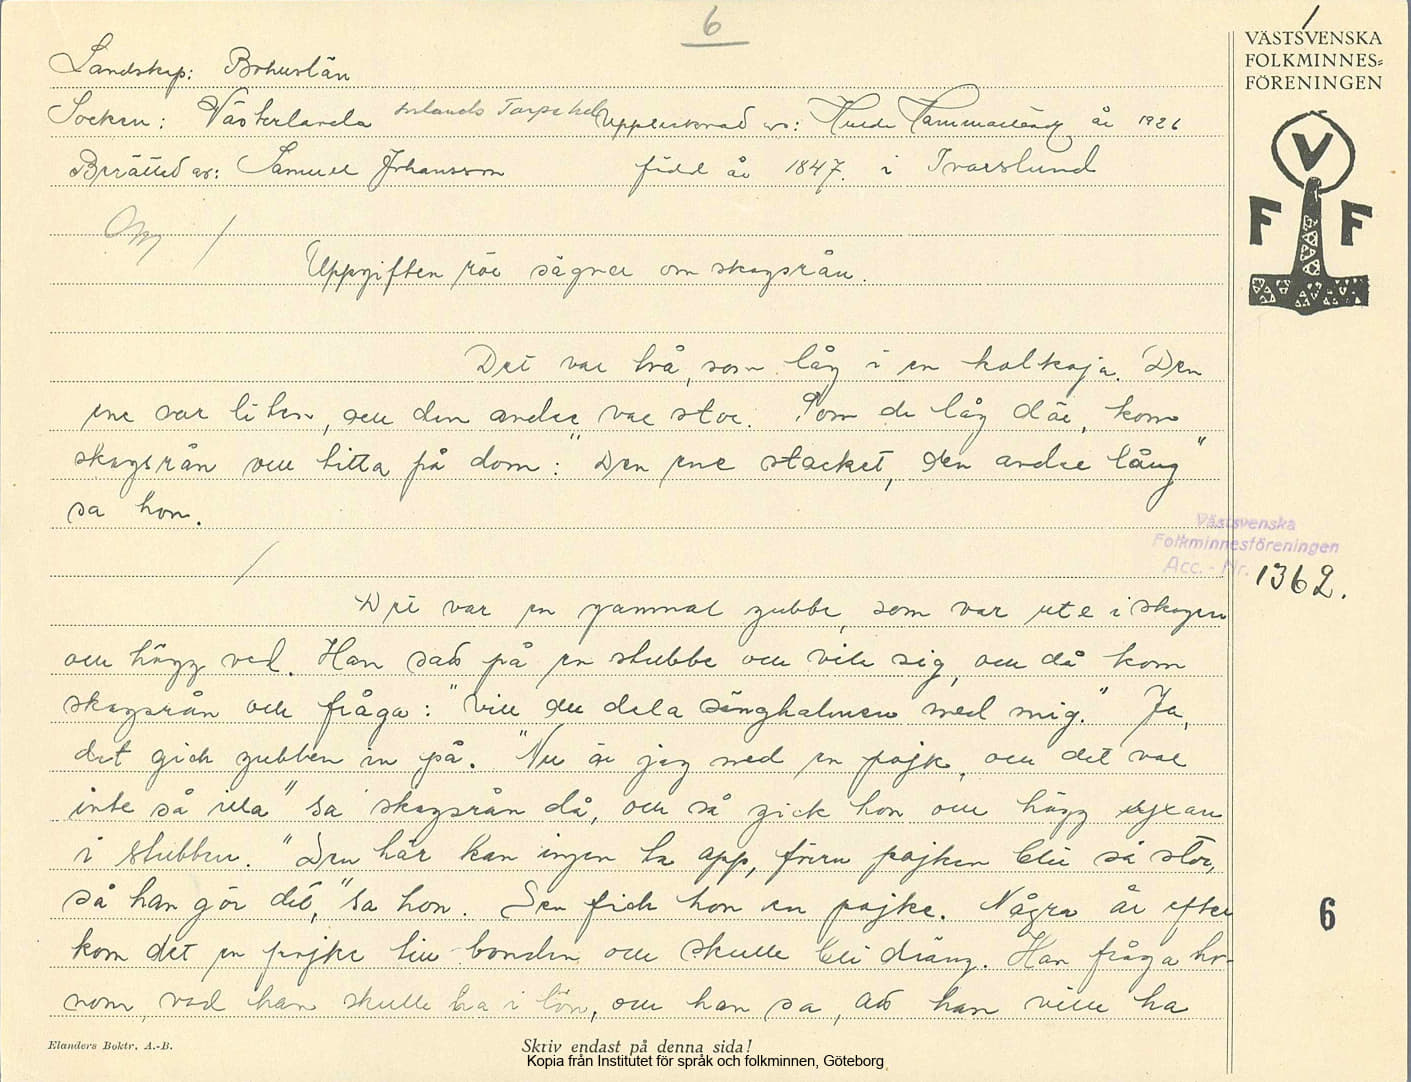 6
1
VÄSTSVENSKA
FOLKMINNES=
FÖRENINGEN
V
F F
Landskap: Bohuslän
Socken: Västerlanda Inlands Torpe hd Upptecknad av: Hulda Hammarlund år 1926
Berättad av: Samuel Johansson född år 1847. i Ivarslund
Uppgiften rör sägner om skogsrån.
Det var två, som låg i en kolkoja. Den
ene var liten, ocu den andre var stor. Som de låg där, kom
skogsrån ocu titta på dom: "Den ene stacket, den andre lång"
sa hon.
Västsvenska
Folkminnesföreningen
Acc. - Nr. 1362.
Det var en gammal gubbe, som var ute i skogen
ocu högg ved. Han satt på en stubbe ocu vile sig, ocu då kom
skogsrån ocu fråga: "vill du dela sänghalmen med mig." Ja,
det gick gubben in på. "Nu är jag med en pojk, ocu det var
inte så illa" sa skogsrån då, ocu så gick hon ocu högg yxan
i stubben. "Den här kan ingen ta opp, förrn pojken blir så stor,
så han gör det," sa hon. Sen fick hon en pojke. Några år efter
kom det en pojke till bonden ocu skulle bli dräng. Han fråga ho-
nom, vad han skulle ha i lön, ocu han sa, att han ville ha
6
Elanders Boktr. A.-B.
Skriv endast på denna sida!
Kopia från Institutet för språk och folkminnen, Göteborg